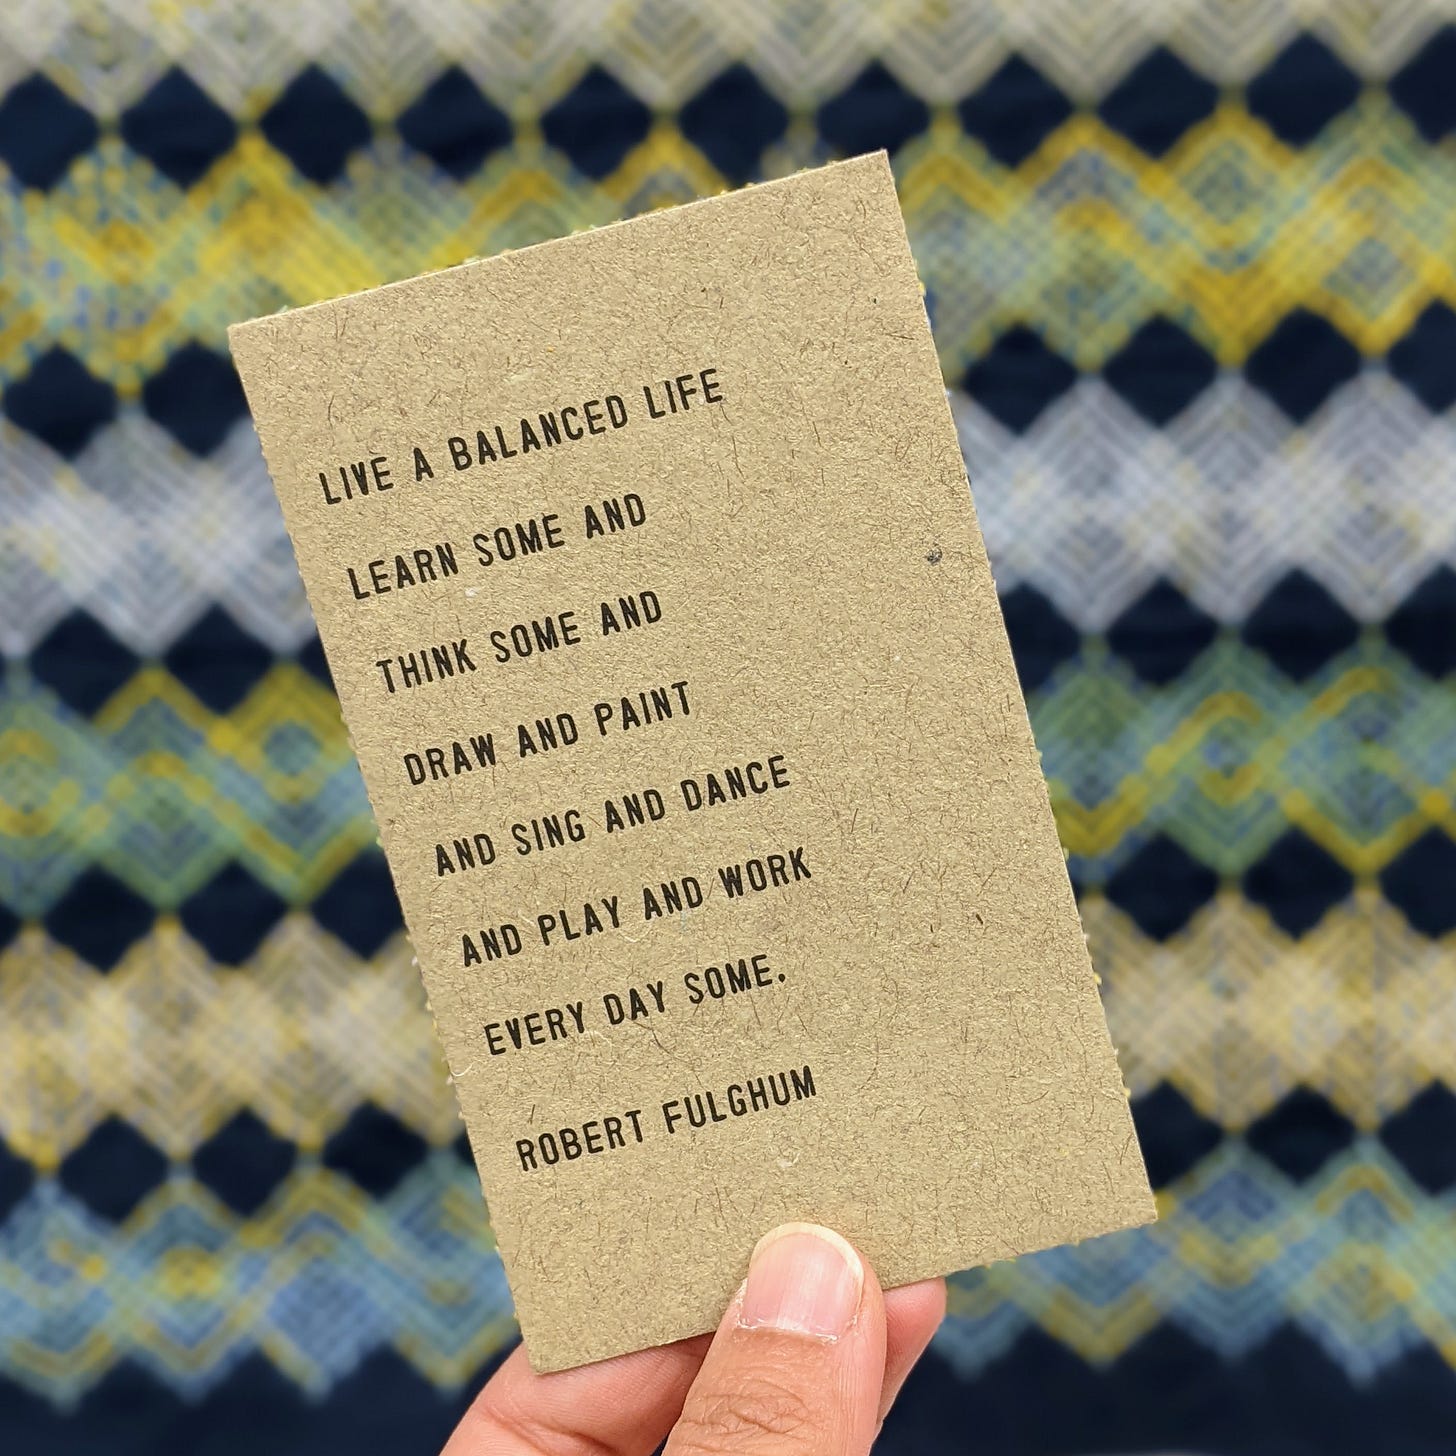 LIVE A BALANCED LIFE
LEARN SOME AND
THINK SOME AND
DRAW AND PAINT
AND SING AND DANCE
AND PLAY AND WORK
EVERY DAY SOME.
ROBERT FULGHUM